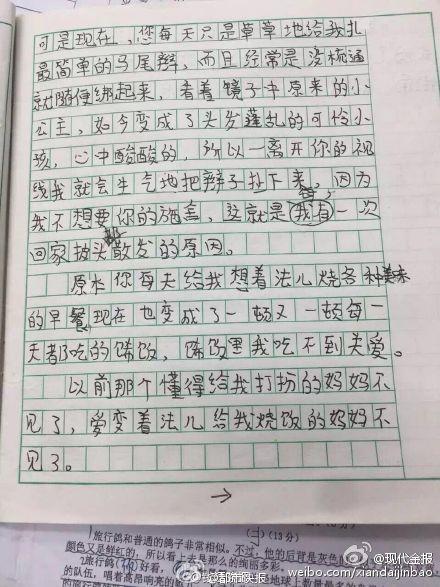 可是现在，您每天只是草草地给我扎
最简单的马尾辫，而且经常是没梳通
就随便绑起来，看着镜子中原来的小
公主，如今变成了头发蓬乱的可怜小
孩，心中酸酸的，所以一离开你的视
线我就会生气地把辫子扯下来，因为
我不想要你的施舍，这就是我有一次
回家披头散发的原因。
原本你每天给我想着法儿烧各种美味
的早餐现在也变成了一顿又一顿每一
天都吃的稀饭，稀饭里我吃不到关爱。
以前那个懂得给我打扮的妈妈不
见了，爱变着法儿给我烧饭的妈妈不
见了。
→
(二) (13分)
旅行鸽和普通的鸽子非常相似。不过，他的后背是灰色
颜色又是鲜红的，所以看上去是那么的绚丽多彩。
旅行鸽
好看，
的队伍，唱着高昂响亮的
地球上数量最多的鸟
@现代金报
weibo.com/xiandaijinbao